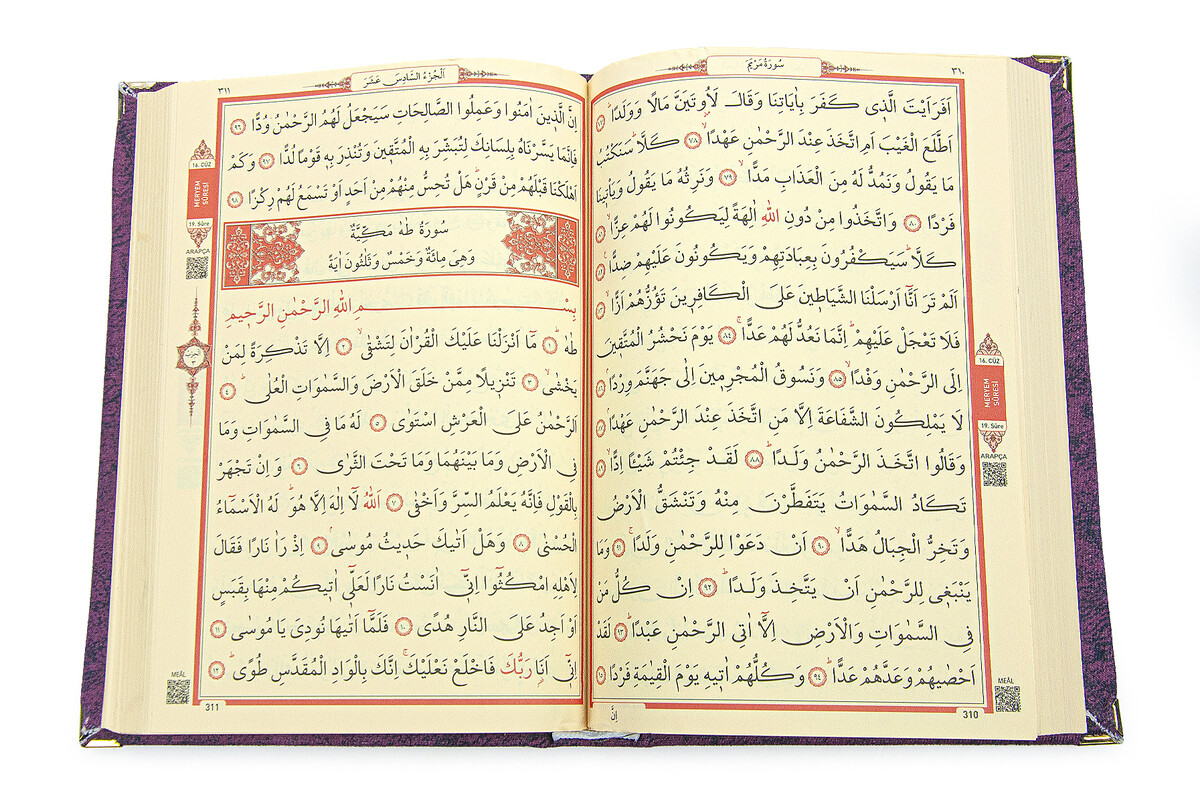 سُورَةُ مَرْيَمَ
٣١٠
اَفَرَاَيْتَ الَّذ۪ي كَفَرَ بِاٰيَاتِنَا وَقَالَ لَاُو۫تَيَنَّ مَالًا وَوَلَدًاۜ ﴿٧٧﴾
اَطَّلَعَ الْغَيْبَ اَمِ اتَّخَذَ عِنْدَ الرَّحْمٰنِ عَهْدًاۙ ﴿٧٨﴾ كَلَّاۜ سَنَكْتُبُ
مَا يَقُولُ وَنَمُدُّ لَهُ مِنَ الْعَذَابِ مَدًّاۙ ﴿٧٩﴾ وَنَرِثُهُ مَا يَقُولُ وَيَأْت۪ينَا
فَرْدًا ﴿٨٠﴾ وَاتَّخَذُوا مِنْ دُونِ اللّٰهِ اٰلِهَةً لِيَكُونُوا لَهُمْ عِزًّاۙ ﴿٨١﴾
كَلَّاۜ سَيَكْفُرُونَ بِعِبَادَتِهِمْ وَيَكُونُونَ عَلَيْهِمْ ضِدًّا۟ ﴿٨٢﴾
اَلَمْ تَرَ اَنَّٓا اَرْسَلْنَا الشَّيَاط۪ينَ عَلَى الْكَافِر۪ينَ تَؤُزُّهُمْ اَزًّاۙ ﴿٨٣﴾
فَلَا تَعْجَلْ عَلَيْهِمْۜ اِنَّمَا نَعُدُّ لَهُمْ عَدًّاۚ ﴿٨٤﴾ يَوْمَ نَحْشُرُ الْمُتَّق۪ينَ
اِلَى الرَّحْمٰنِ وَفْدًاۙ ﴿٨٥﴾ وَنَسُوقُ الْمُجْرِم۪ينَ اِلٰى جَهَنَّمَ وِرْدًاۢ ﴿٨٦﴾
لَا يَمْلِكُونَ الشَّفَاعَةَ اِلَّا مَنِ اتَّخَذَ عِنْدَ الرَّحْمٰنِ عَهْدًاۢ ﴿٨٧﴾
وَقَالُوا اتَّخَذَ الرَّحْمٰنُ وَلَدًاۜ ﴿٨٨﴾ لَقَدْ جِئْتُمْ شَيْـًٔا اِدًّاۙ ﴿٨٩﴾
تَكَادُ السَّمٰوَاتُ يَتَفَطَّرْنَ مِنْهُ وَتَنْشَقُّ الْاَرْضُ
وَتَخِرُّ الْجِبَالُ هَدًّاۙ ﴿٩٠﴾ اَنْ دَعَوْا لِلرَّحْمٰنِ وَلَدًاۚ ﴿٩١﴾ وَمَا
يَنْبَغ۪ي لِلرَّحْمٰنِ اَنْ يَتَّخِذَ وَلَدًاۜ ﴿٩٢﴾ اِنْ كُلُّ مَنْ
فِي السَّمٰوَاتِ وَالْاَرْضِ اِلَّٓا اٰتِي الرَّحْمٰنِ عَبْدًاۜ ﴿٩٣﴾ لَقَدْ
اَحْصٰيهُمْ وَعَدَّهُمْ عَدًّاۜ ﴿٩٤﴾ وَكُلُّهُمْ اٰت۪يهِ يَوْمَ الْقِيٰمَةِ فَرْدًا ﴿٩٥﴾
اِنَّ
310
16. CÜZ
MERYEM
SÛRESİ
19. Sûre
ARAPÇA
MEÂL
٣١١
اَلْجُزْءُ السَّادِسَ عَشَرَ
اِنَّ الَّذ۪ينَ اٰمَنُوا وَعَمِلُوا الصَّالِحَاتِ سَيَجْعَلُ لَهُمُ الرَّحْمٰنُ وُدًّا ﴿٩٦﴾
فَاِنَّمَا يَسَّرْنَاهُ بِلِسَانِكَ لِتُبَشِّرَ بِهِ الْمُتَّق۪ينَ وَتُنْذِرَ بِه۪ قَوْمًا لُدًّا ﴿٩٧﴾ وَكَمْ
اَهْلَكْنَا قَبْلَهُمْ مِنْ قَرْنٍۜ هَلْ تُحِسُّ مِنْهُمْ مِنْ اَحَدٍ اَوْ تَسْمَعُ لَهُمْ رِكْزًا ﴿٩٨﴾
سُورَةُ طٰهٰ مَكِّيَّةٌ
وَهِيَ مِائَةٌ وَخَمْسٌ وَثَلٰثُونَ اٰيَةً
بِسْمِ اللّٰهِ الرَّحْمٰنِ الرَّح۪يمِ
طٰهٰۜ ﴿١﴾ مَٓا اَنْزَلْنَا عَلَيْكَ الْقُرْاٰنَ لِتَشْقٰىۙ ﴿٢﴾ اِلَّا تَذْكِرَةً لِمَنْ
يَخْشٰىۙ ﴿٣﴾ تَنْز۪يلًا مِمَّنْ خَلَقَ الْاَرْضَ وَالسَّمٰوَاتِ الْعُلٰىۜ ﴿٤﴾
اَلرَّحْمٰنُ عَلَى الْعَرْشِ اسْتَوٰى ﴿٥﴾ لَهُ مَا فِي السَّمٰوَاتِ وَمَا
فِي الْاَرْضِ وَمَا بَيْنَهُمَا وَمَا تَحْتَ الثَّرٰى ﴿٦﴾ وَاِنْ تَجْهَرْ
بِالْقَوْلِ فَاِنَّهُ يَعْلَمُ السِّرَّ وَاَخْفٰى ﴿٧﴾ اَللّٰهُ لَٓا اِلٰهَ اِلَّا هُوَۜ لَهُ الْاَسْمَٓاءُ
الْحُسْنٰى ﴿٨﴾ وَهَلْ اَتٰيكَ حَد۪يثُ مُوسٰىۢ ﴿٩﴾ اِذْ رَاٰ نَارًا فَقَالَ
لِاَهْلِهِ امْكُثُٓوا اِنّ۪ٓي اٰنَسْتُ نَارًا لَعَلّ۪ٓي اٰت۪يكُمْ مِنْهَا بِقَبَسٍ
اَوْ اَجِدُ عَلَى النَّارِ هُدًى ﴿١٠﴾ فَلَمَّٓا اَتٰيهَا نُودِيَ يَا مُوسٰىۜ ﴿١١﴾
اِنّ۪ٓي اَنَا۬ رَبُّكَ فَاخْلَعْ نَعْلَيْكَۚ اِنَّكَ بِالْوَادِ الْمُقَدَّسِ طُوًىۜ ﴿١٢﴾
311
16. CÜZ
MERYEM
SÛRESİ
19. Sûre
ARAPÇA
MEÂL